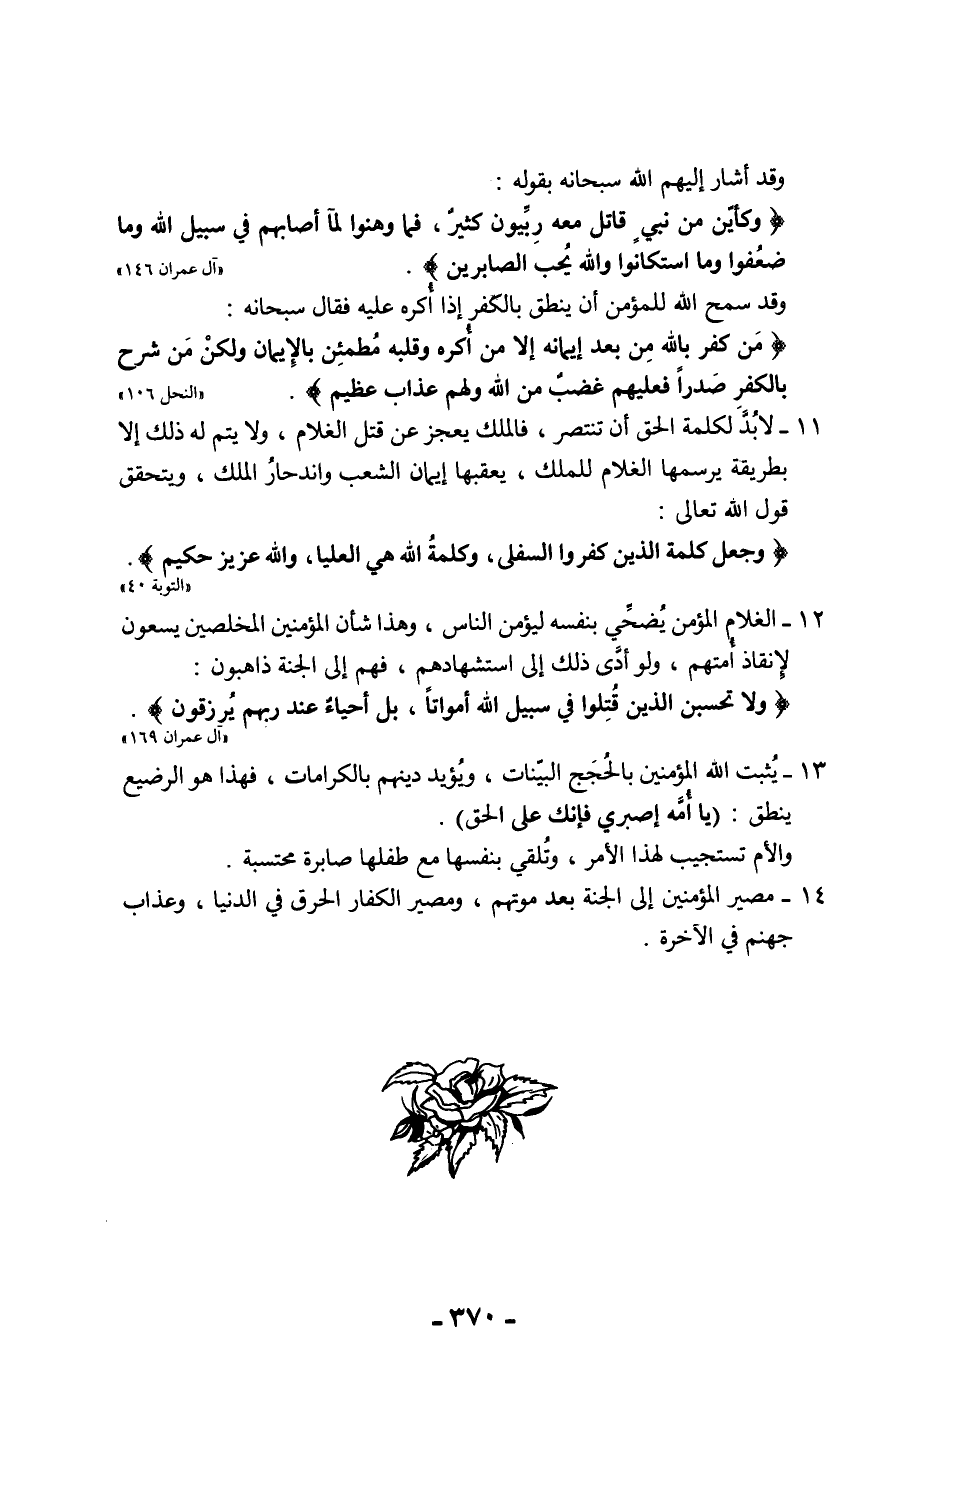 وقد أشار إليهم الله سبحانه بقوله :
﴿ وكأيّن من نبيٍ قاتل معه رِبِّيون كثيرٌ ، فما وهنوا لمآ أصابهم في سبيل الله وما
ضعُفوا وما استكانوا والله يُحب الصابرين ﴾ . «آل عمران ١٤٦»
وقد سمح الله للمؤمن أن ينطق بالكفر إذا أُكره عليه فقال سبحانه :
﴿ مَن كفر بالله مِن بعد إيمانه إلا من أُكره وقلبه مُطمئِن بالإِيمان ولكنْ مَن شرح
بالكفرِ صَدراً فعليهم غضبٌ من الله ولهم عذاب عظيم ﴾ . «النحل ١٠٦»
١١ ـ لابُدَّ لكلمة الحق أن تنتصر ، فالملك يعجز عن قتل الغلام ، ولا يتم له ذلك إلا
بطريقة يرسمها الغلام للملك ، يعقبها إيمان الشعب واندحارُ الملك ، ويتحقق
قول الله تعالى :
﴿ وجعل كلمة الذين كفروا السفلى، وكلمةُ الله هي العليا، والله عزيز حكيم ﴾ .
«التوبة ٤٠»
١٢ ـ الغلام المؤمن يُضحِّي بنفسه ليؤمن الناس ، وهذا شأن المؤمنين المخلصين يسعون
لإِنقاذ أُمتهم ، ولو أدَّى ذلك إلى استشهادهم ، فهم إلى الجنة ذاهبون :
﴿ ولا تحسبن الذين قُتِلوا في سبيل الله أمواتاً ، بل أحياءٌ عند ربهم يُرزقون ﴾ .
«آل عمران ١٦٩»
١٣ ـ يُثبت الله المؤمنين بالحُجَج البيّنات ، ويُؤيد دينهم بالكرامات ، فهذا هو الرضيع
ينطق : (يا أُمَّه إصبري فإنك على الحق) .
والأم تستجيب لهذا الأمر ، وتُلقي بنفسها مع طفلها صابرة محتسبة .
١٤ ـ مصير المؤمنين إلى الجنة بعد موتهم ، ومصير الكفار الحرق في الدنيا ، وعذاب
جهنم في الآخرة .
ـ ٣٧٠ ـ